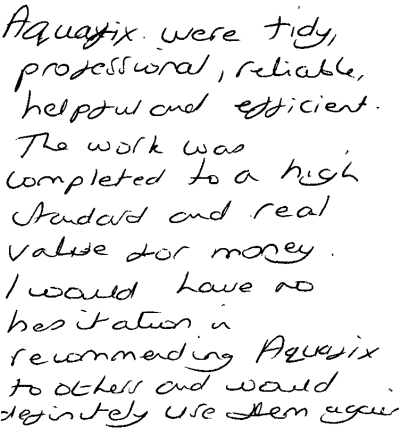 Aquafix were tidy,
professional, reliable,
helpful and efficient.
The work was
completed to a high
standard and real
value for money.
I would have no
hesitation in
recommending Aquafix
to others and would
definitely use them again